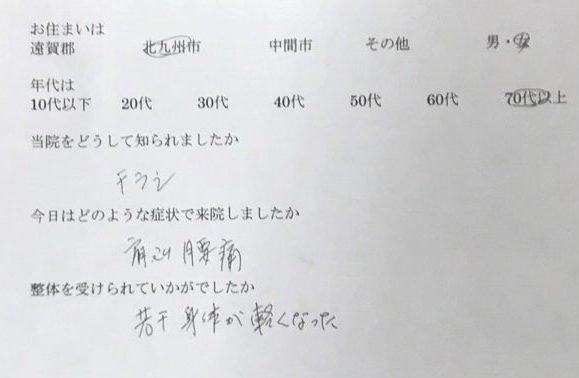 お住まいは
遠賀郡 北九州市 中間市 その他 男・女
年代は
10代以下 20代 30代 40代 50代 60代 70代以上
当院をどうして知られましたか
チラシ
今日はどのような症状で来院しましたか
肩こり 腰痛
整体を受けられていかがでしたか
若干 身体が軽くなった